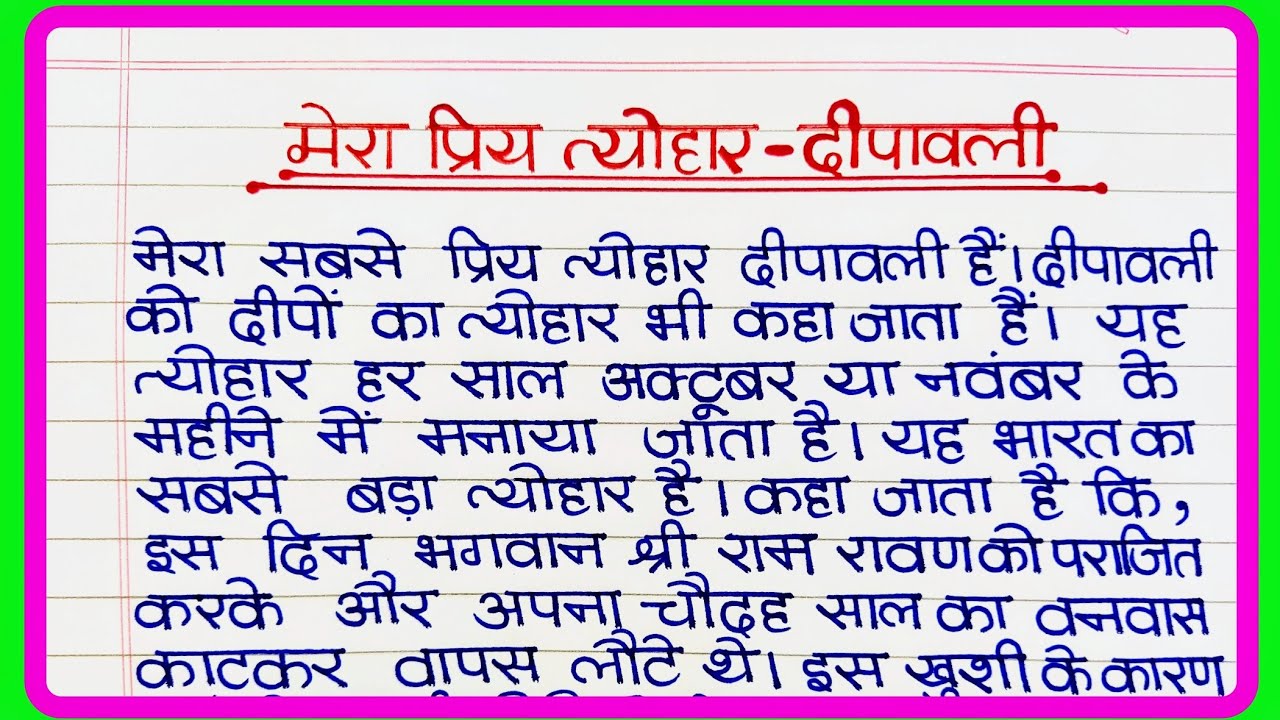 मेरा प्रिय त्योहार-दीपावली
मेरा सबसे प्रिय त्योहार दीपावली हैं। दीपावली
को दीपों का त्योहार भी कहा जाता हैं। यह
त्योहार हर साल अक्टूबर या नवंबर के
महीने में मनाया जाता है। यह भारत का
सबसे बड़ा त्योहार है। कहा जाता है कि,
इस दिन भगवान श्री राम रावण को पराजित
करके और अपना चौदह साल का वनवास
काटकर वापस लौटे थे। इस खुशी के कारण